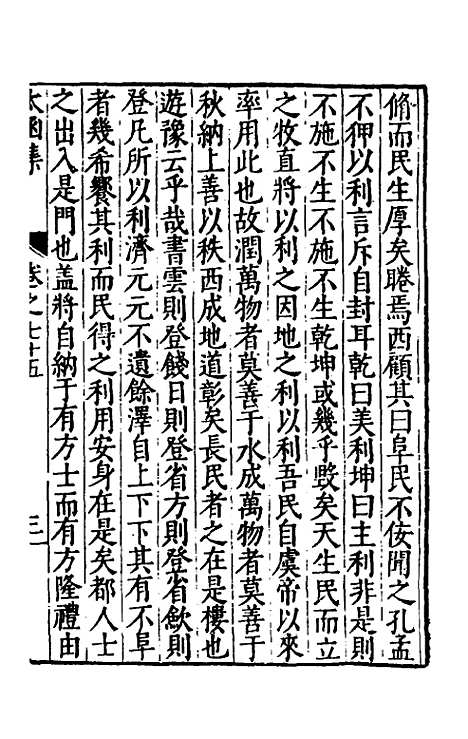 脩而民生厚矣睠焉西顧其曰阜民不佞聞之孔孟
不狎以利言斥自封耳乾曰美利坤曰主利非是則
不施不生不施不生乾坤或幾乎斁矣天生民而立
之牧直將以利之因地之利以利吾民自虞帝以來
率用此也故潤萬物者莫善于水成萬物者莫善于
秋納上善以秩西成地道彰矣長民者之在是樓也
遊豫云乎哉書雲則登餞日則登省方則登省斂則
登凡所以利濟元元不遺餘澤自上下下其有不阜
者幾希饗其利而民得之利用安身在是矣都人士
之出入是門也盖將自納于有方士而有方隆禮由
太函集
卷之七十五
三